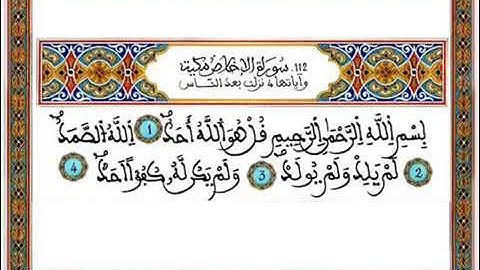 112. سورة الإخلاص مكية
وآياتها 4 نزلت بعد الناس
بِسْمِ اِللَّهِ اِلرَّحْمَٰنِ اِلرَّحِيمِ قُلْ هُوَ اَللَّهُ أَحَدٌ 1 اِللَّهُ اُلصَّمَدُ
2 لَمْ يَلِدْ وَلَمْ يُولَدْ 3 وَلَمْ يَكُن لَّهُۥ كُفُؤًا اَحَدٌ 4